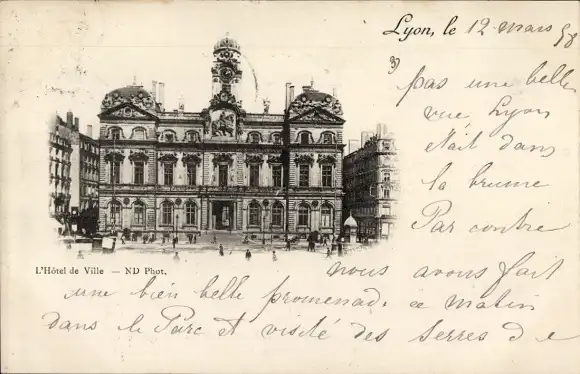 Lyon, le 12 mars 98
3)
pas une belle
vue, Lyon
était dans
la brume
Par contre
L'Hôtel de Ville — ND Phot.
nous avons fait
une bien belle promenade ce matin
dans le Parc et visité des serres de